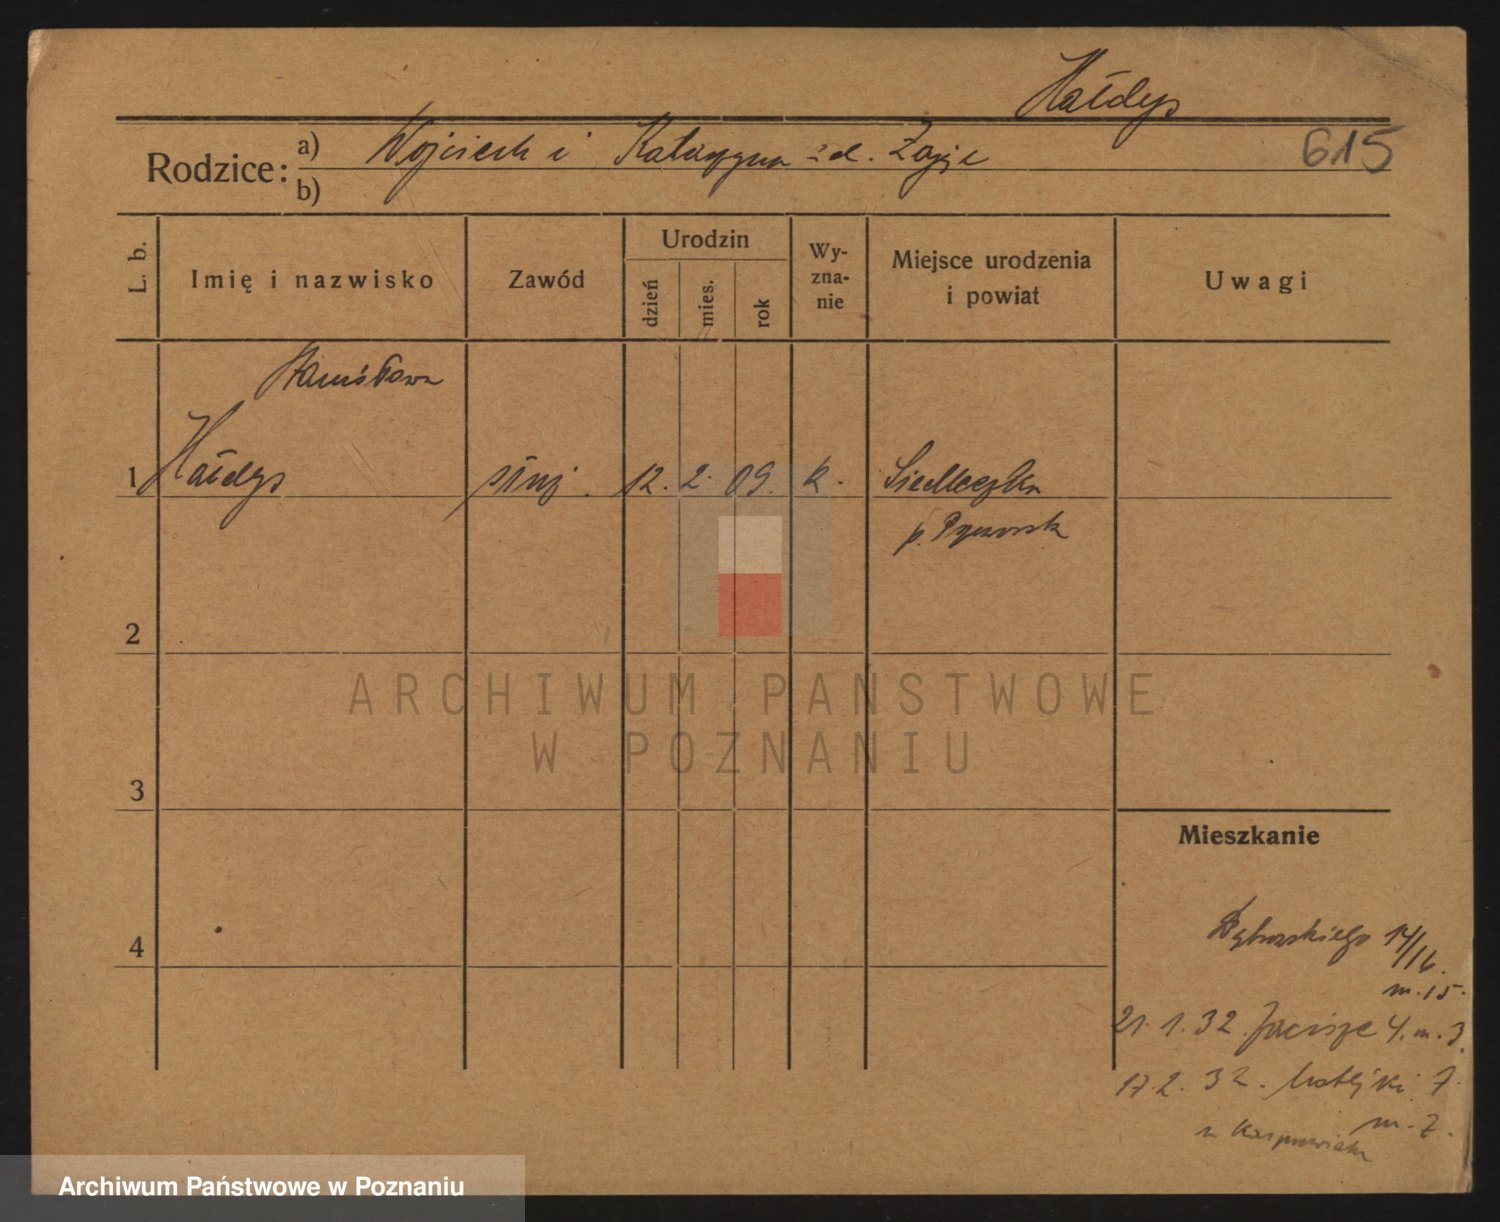 Hałdys
615
Rodzice: a) Wojciech i Katarzyna z d. Zając
b)
L. b.
Imię i nazwisko
Zawód
Urodzin
dzień
mies.
rok
Wy-
zna-
nie
Miejsce urodzenia
i powiat
Uwagi
Stanisława
1 Hałdys służ. 12. 2. 09. k. Siedleczka
p. Przeworsk
2
3
4
Mieszkanie
Dąbrowskiego 14/16.
m. 15.
21. 1. 32. Zacisze 4. m. 3.
17. 2. 32. Matejki 7.
m. 7.
u
ARCHIWUM PAŃSTWOWE
W POZNANIU
Archiwum Państwowe w Poznaniu